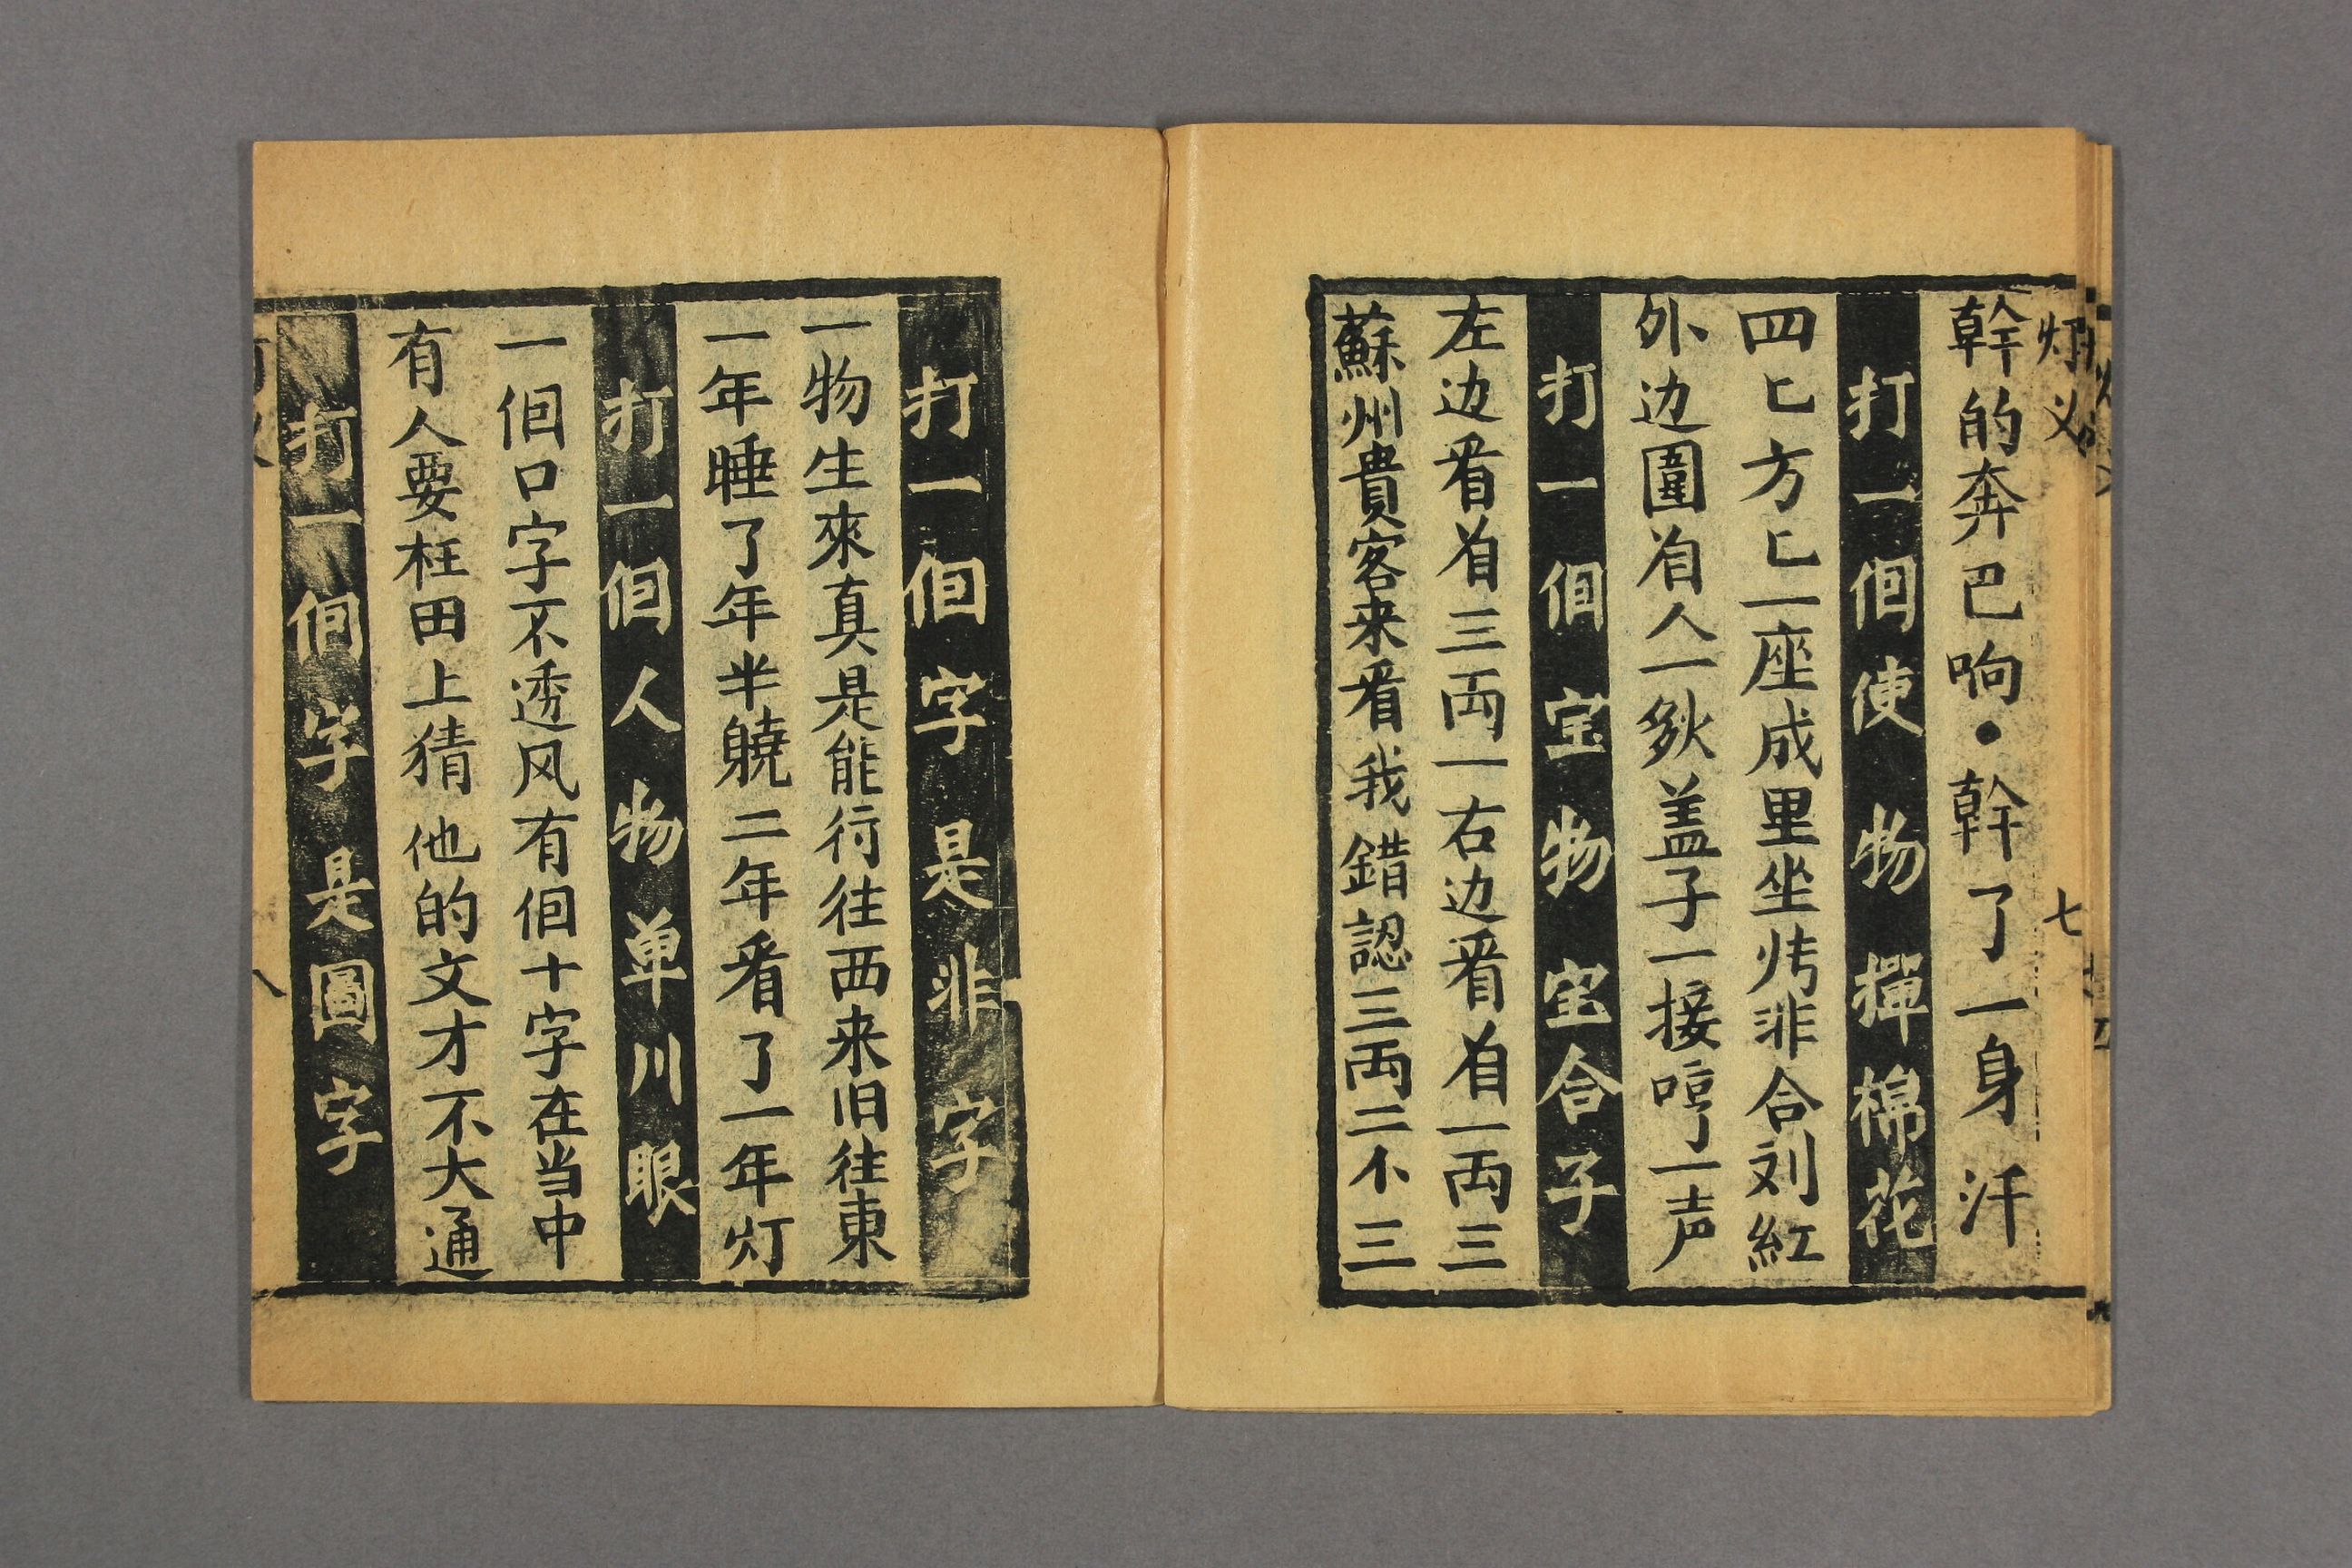 七
幹的奔巴响•幹了一身汗
打一佪使物撣棉花
四匕方匕一座成里坐烤非合刘紅
外边圍着人一烾盖子一接哼一声
打一佪宝物宝合子
左边看着三両一右边看着一両三
蘇州貴客来看我錯認三両二不三
打一佪字是非字
一物生來真是能行往西来旧往東
一年睡了年半觥二年看了一年灯
打一佪人物单川眼
一佪口字不透风有佪十字在当中
有人要枉田上猜他的文才不大通
打一佪字是圖字
八